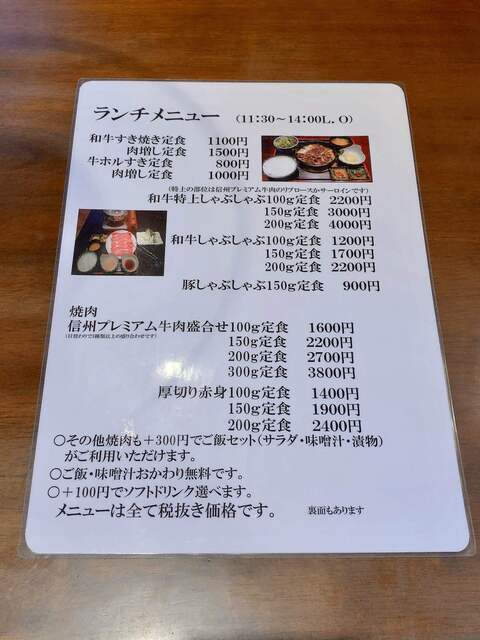 ランチメニュー (11:30～14:00L.O)
和牛すき焼き定食 1100円
肉増し定食 1500円
牛ホルすき定食 800円
肉増し定食 1000円
(特上の部位は信州プレミアム牛肉のリブロースかサーロインです)
和牛特上しゃぶしゃぶ100g定食 2200円
150g定食 3000円
200g定食 4000円
和牛しゃぶしゃぶ100g定食 1200円
150g定食 1700円
200g定食 2200円
豚しゃぶしゃぶ150g定食 900円
焼肉
信州プレミアム牛肉盛合せ100g定食 1600円
150g定食 2200円
(日替わりで3種類以上の盛り合わせです)
200g定食 2700円
300g定食 3800円
厚切り赤身100g定食 1400円
150g定食 1900円
200g定食 2400円
○その他焼肉も＋300円でご飯セット(サラダ・味噌汁・漬物)
がご利用いただけます。
○ご飯・味噌汁おかわり無料です。
○＋100円でソフトドリンク選べます。
メニューは全て税抜き価格です。 裏面もあります